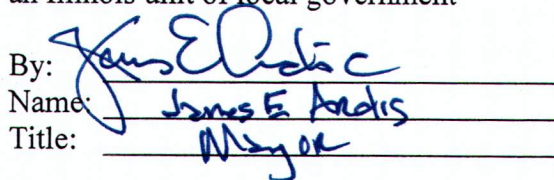 an Illinois unit of local government
By: James E Ardis
Name: James E Ardis
Title: Mayor